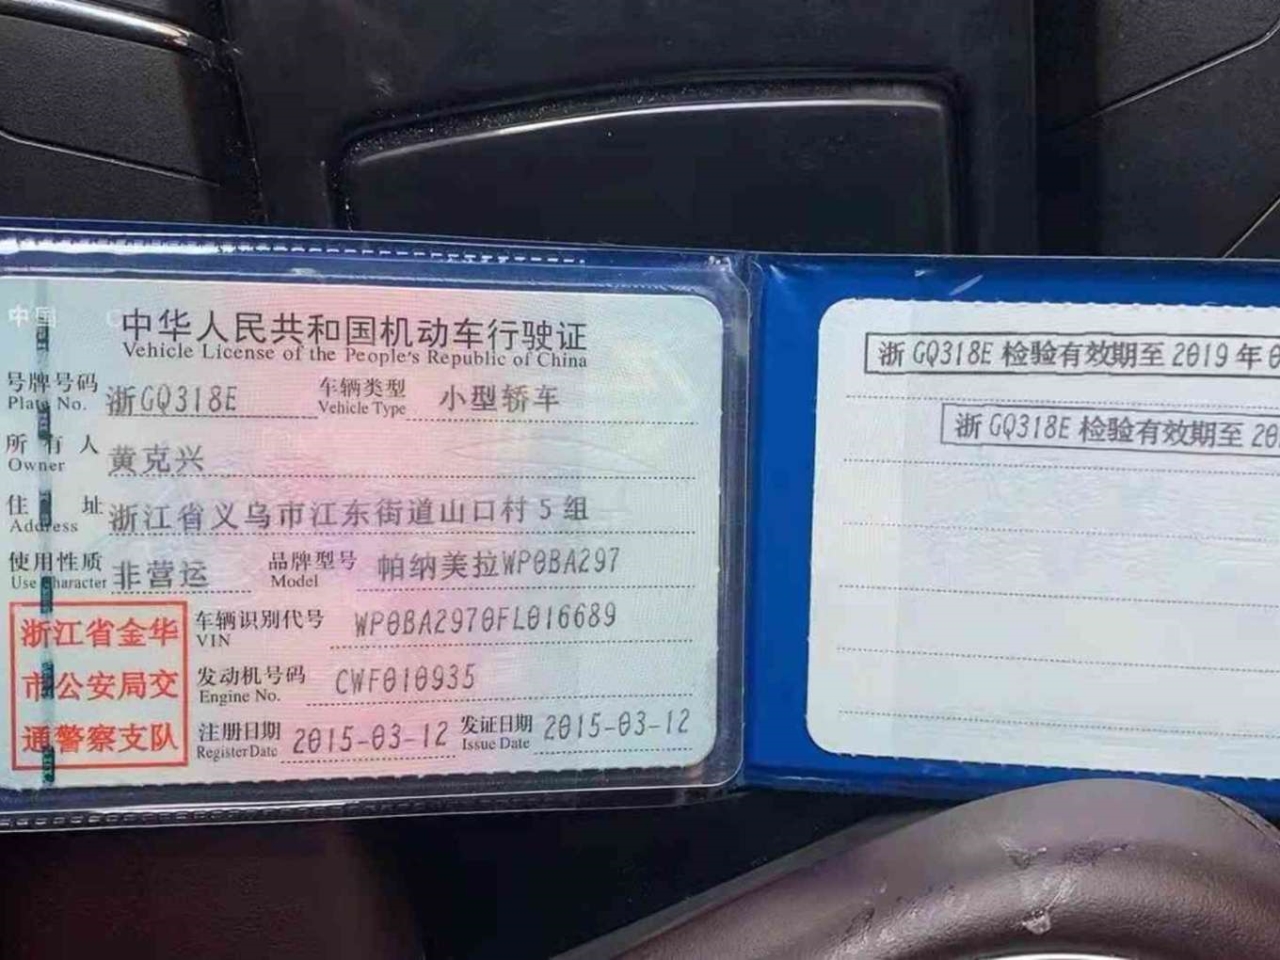 中国
中华人民共和国机动车行驶证
Vehicle License of the People's Republic of China
号牌号码 Plate No. 浙GQ318E 车辆类型 Vehicle Type 小型轿车
所有人 Owner 黄克兴
住址 Address 浙江省义乌市江东街道山口村5组
使用性质 Use Character 非营运 品牌型号 Model 帕纳美拉WP0BA297
车辆识别代号 VIN WP0BA2970FL016689
发动机号码 Engine No. CWF010935
注册日期 Register Date 2015-03-12 发证日期 Issue Date 2015-03-12
浙江省金华
市公安局交
通警察支队
浙GQ318E检验有效期至2019年0
浙GQ318E检验有效期至20